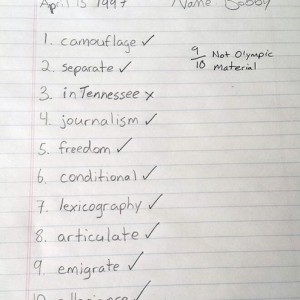 April 15 1997 Name Bobby
1. camouflage ✓
9/10 Not Olympic
Material
2. separate ✓
3. inTennessee x
4. journalism ✓
5. freedom ✓
6. conditional ✓
7. lexicography ✓
8. articulate ✓
9. emigrate ✓
10. allegiance ✓